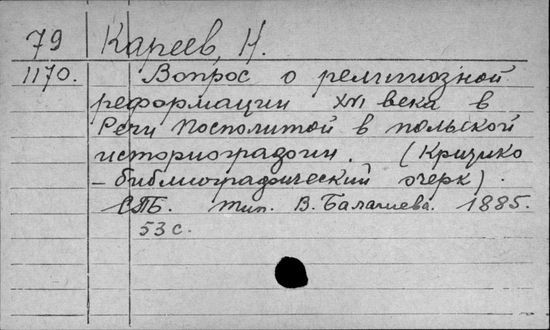 79 Кареев, Н.
1170. Вопрос о религиозной
реформации XVI века в
Речи Посполитой в польской
историографии. (Критико
-библиографический очерк).
СПБ. тип. В. Балашева. 1885.
53 с.